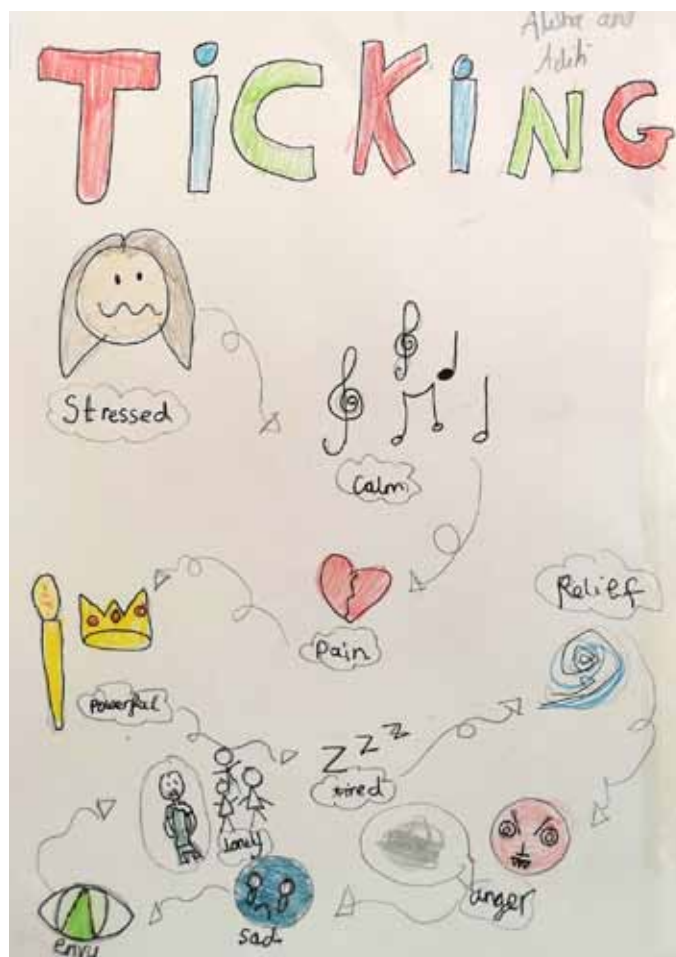 Alisha and
Aditi
TiCKiNG
Stressed
Calm
Pain
Relief
Powerful
zzz
tired
lonely
anger
sad
envy